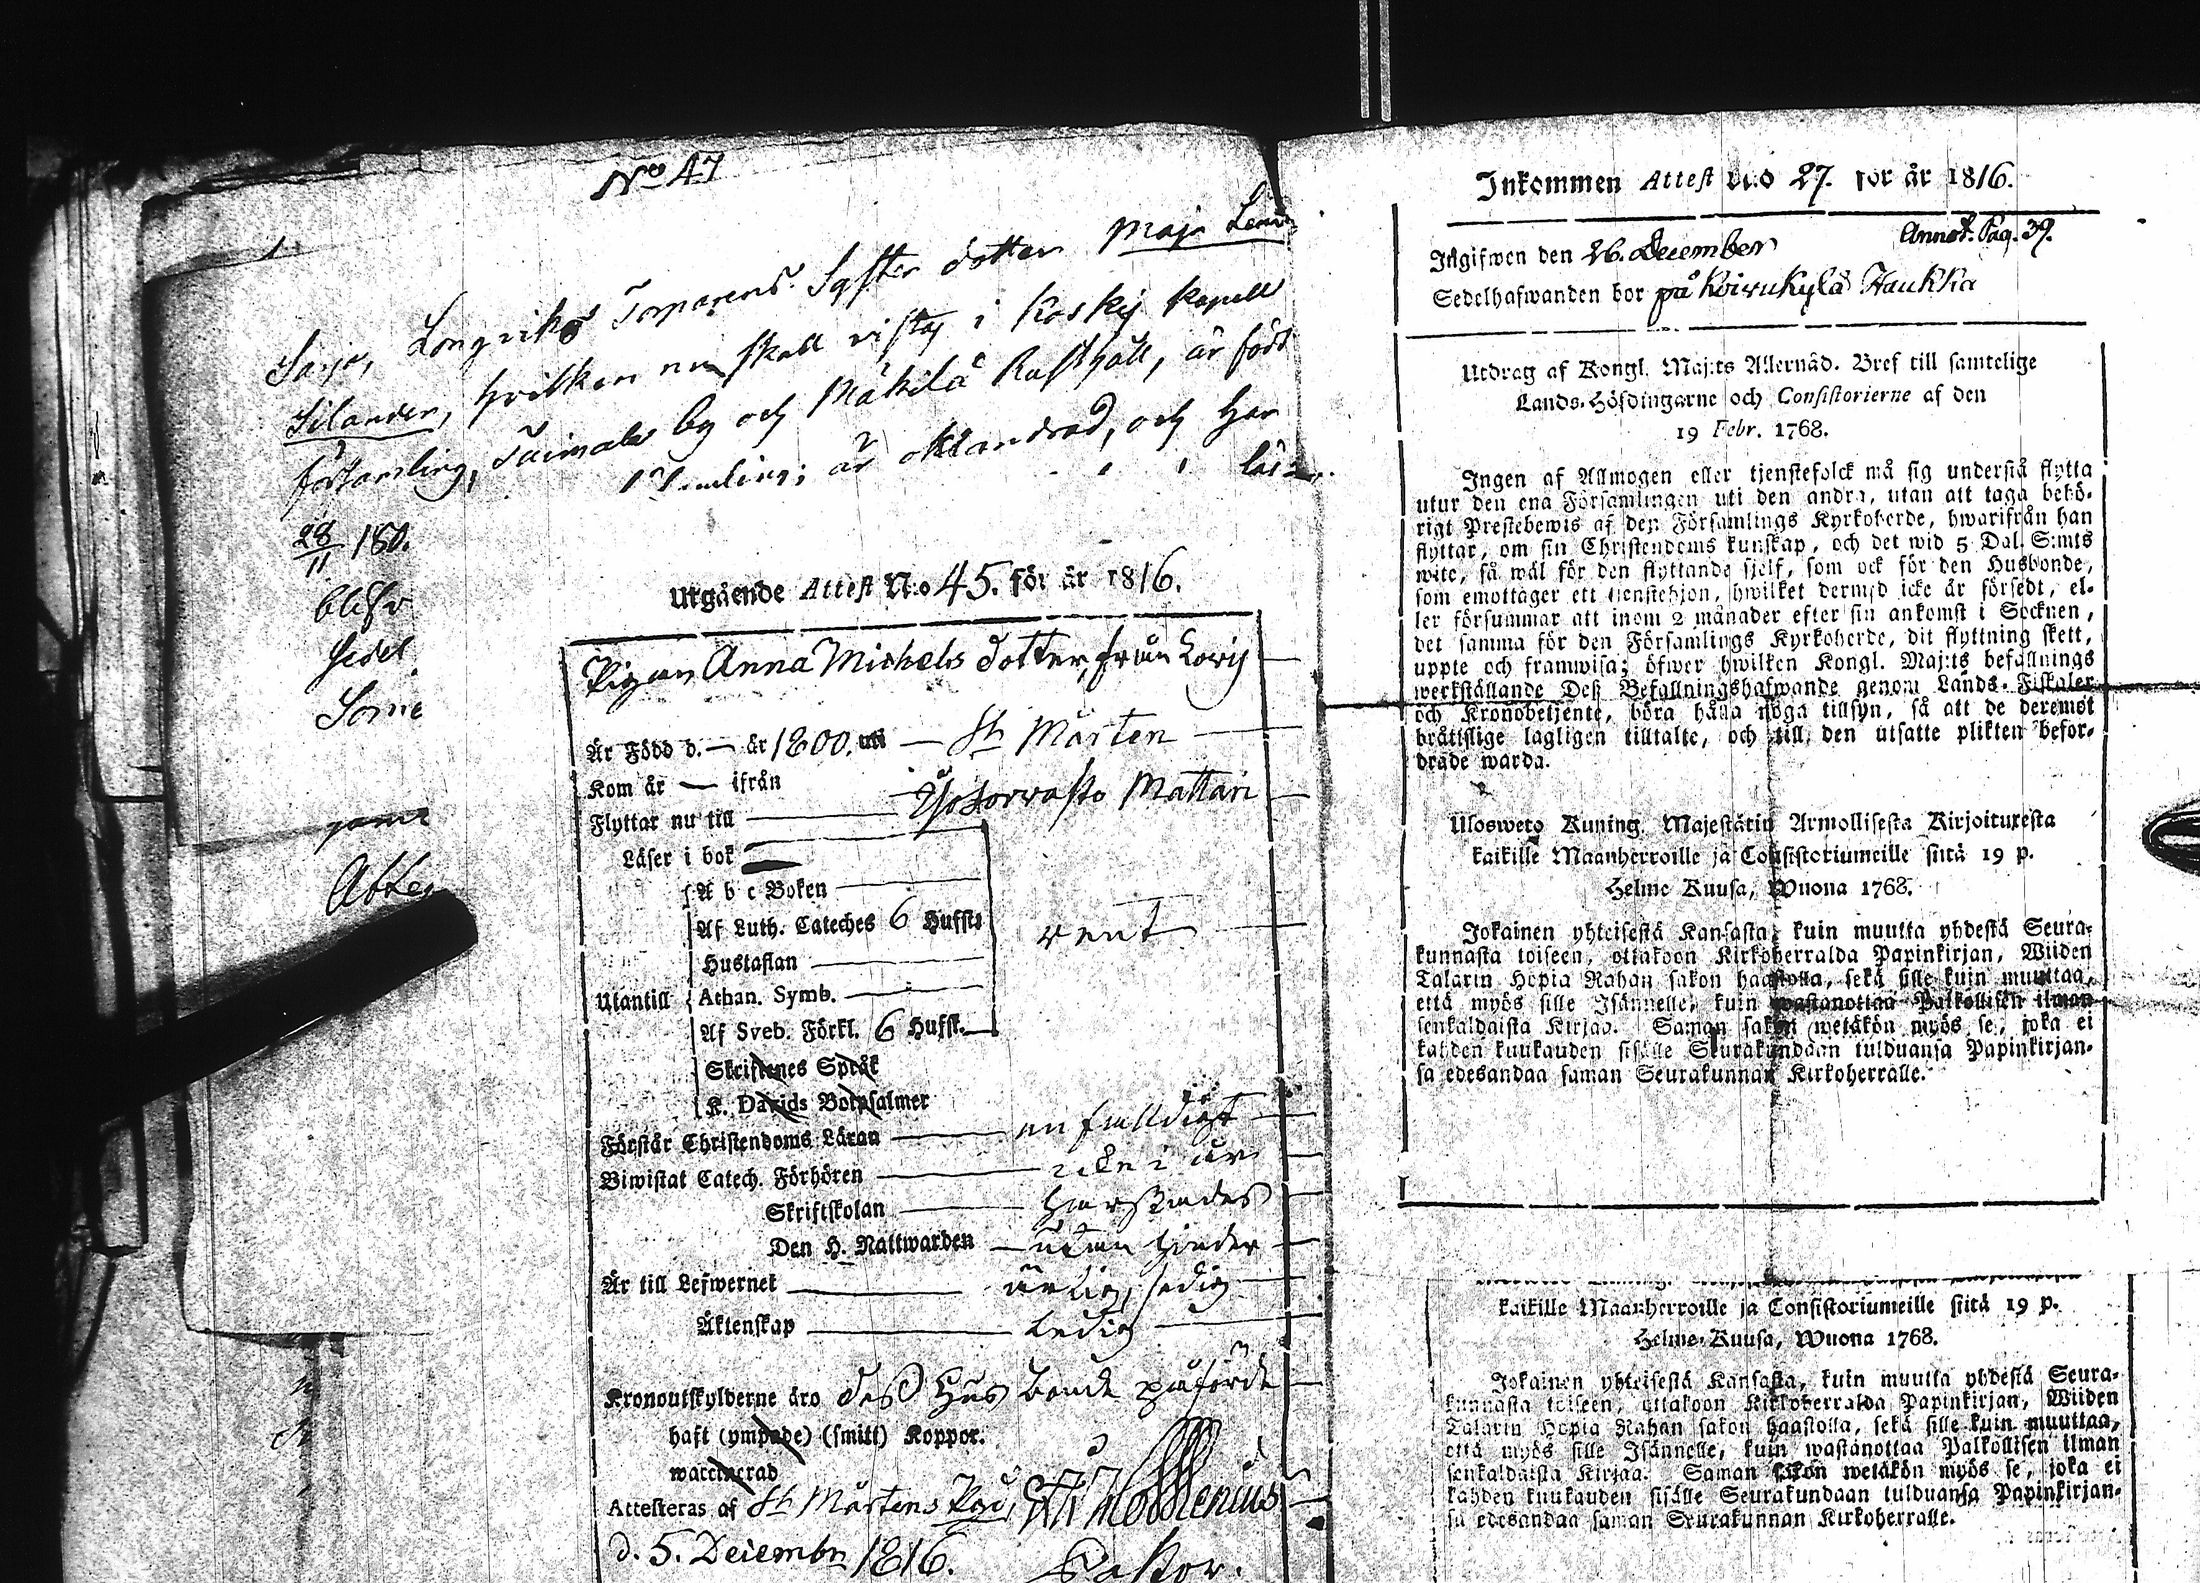 No 47
Sarjo, Longviks Torparens Syster dotter Maja Lena
Silander, hvilken nu skall vistas i Koskis Kapell
församling, Tuimala by och Mäkilä Rusthåll, är född
är oklandrad, och har
28/11 180.
blifv
Sedel
Some
Attes
Utgående Attest N:o 45. för år 1816.
Pigan Anna Michels dotter, från Lovis
Är Född d. — år 1800. uti — St Mårten
Kom år — ifrån
Flyttar nu till — Mattari
Läser i bok
A b c Boken
Af Luth. Cateches 6 Hufst. rent
Hustaflan
Utantill Athan. Symb.
Af Sveb. Förkl. 6 Hufst.
Skriftenes Språk
K. Davids Botpsalmer
Förstår Christendoms Läran — enfalldigt
Biwistat Catech. Förhören — icke i år
Skriftskolan — härstädes
Den H. Nattwarden — utan hinder
Är till Lefwernet — ärlig, sedig
Äktenskap — ledig
Kronoutskylderne äro dess Husbonde påförde
haft (ympade) (smitt) Koppor.
waccinerad
Attesteras af St Mårtens
d. 5. Decembr 1816. Pastor.
Inkommen Attest N:o 27. för år 1816.
Annot. Pag. 39.
Ingifwen den 26. December
Sedelhafwanden bor på Koivukylä Haukka
Utdrag af Kongl. Maj:ts Allernåd. Bref till samtelige
Lands-Höfdingarne och Consistorierne af den
19 Febr. 1768.
Ingen af Allmogen eller tjenstefolck må sig understå flytta
utur den ena Församlingen uti den andra, utan att taga behö-
rigt Prestebewis af den Församlings Kyrkoherde, hwarifrån han
flyttar, om sin Christendoms kunskap, och det wid 5 Dal. S:mts
wite, så wäl för den flyttande sjelf, som ock för den Husbonde,
som emottager ett tjenstehjon, hwilket dermed icke är försedt, el-
ler försummar att inom 2 månader efter sin ankomst i Socknen,
det samma för den Församlings Kyrkoherde, dit flyttning skett,
uppte och framwisa; öfwer hwilken Kongl. Maj:ts befallnings
werkställande Deß Befallningshafwande genom Lands-Fiskaler
och Kronobetjente, böra hålla noga tillsyn, så att de deremot
bråttslige lagligen tilltalte, och till den utsatte plikten befor-
drade warda.
Ulosweto Kuning. Majestätin Armollisesta Kirjoituxesta
kaikille Maanherroille ja Consistoriumeille siitä 19 p.
Helme Kuusa, Wuona 1768.
Jokainen yhteisestä Kansasta, kuin muutta yhdestä Seura-
kunnasta toiseen, ottakoon Kirkoherralda Papinkirjan, Wiiden
Talarin Hopia Rahan sakon haastolla, sekä sille kuin muuttaa,
että myös sille Isännelle, kuin wastanottaa Palkollisen ilman
senkaldaista Kirjaa. Saman sakon wetäkön myös se, joka ei
kahden kuukauden sisälle Seurakundaan tulduansa Papinkirjan-
sa edesandaa saman Seurakunnan Kirkoherralle.
kaikille Maanherroille ja Consistoriumeille siitä 19 p.
Helme-Kuusa, Wuona 1768.
Jokainen yhteisestä Kansasta, kuin muutta yhdestä Seura-
kunnasta toiseen, ottakoon Kirkoherralda Papinkirjan, Wiiden
Talarin Hopia Rahan sakon haastolla, sekä sille kuin muuttaa,
että myös sille Isännelle, kuin wastanottaa Palkollisen ilman
senkaldaista Kirjaa. Saman sakon wetäkön myös se, joka ei
kahden kuukauden sisälle Seurakundaan tulduansa Papinkirjan-
sa edesandaa saman Seurakunnan Kirkoherralle.